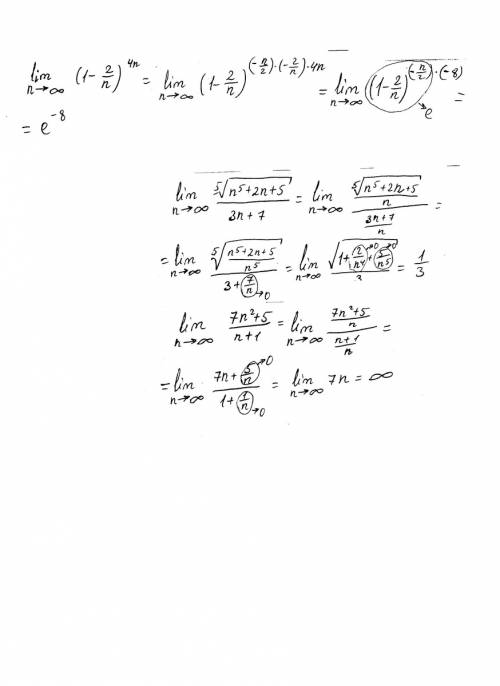 lim n→∞ (1 - 2/n)^(4n) = lim n→∞ (1 - 2/n)^((-n/2)·(-2/n)·4n) = lim n→∞ ((1 - 2/n)^(-n/2))^(·(-8)) → e =
= e^(-8)
lim n→∞ ⁵√(n⁵+2n+5) / (3n+7) = lim n→∞ (⁵√(n⁵+2n+5) / n) / ((3n+7) / n) =
= lim n→∞ ⁵√((n⁵+2n+5) / n⁵) / (3 + 7/n →0) = lim n→∞ √(1 + 2/n⁴ →0 + 5/n⁵ →0) / 3 = 1/3
lim n→∞ (7n²+5) / (n+1) = lim n→∞ ((7n²+5) / n) / ((n+1) / n) =
= lim n→∞ (7n + 5/n →0) / (1 + 1/n →0) = lim n→∞ 7n = ∞